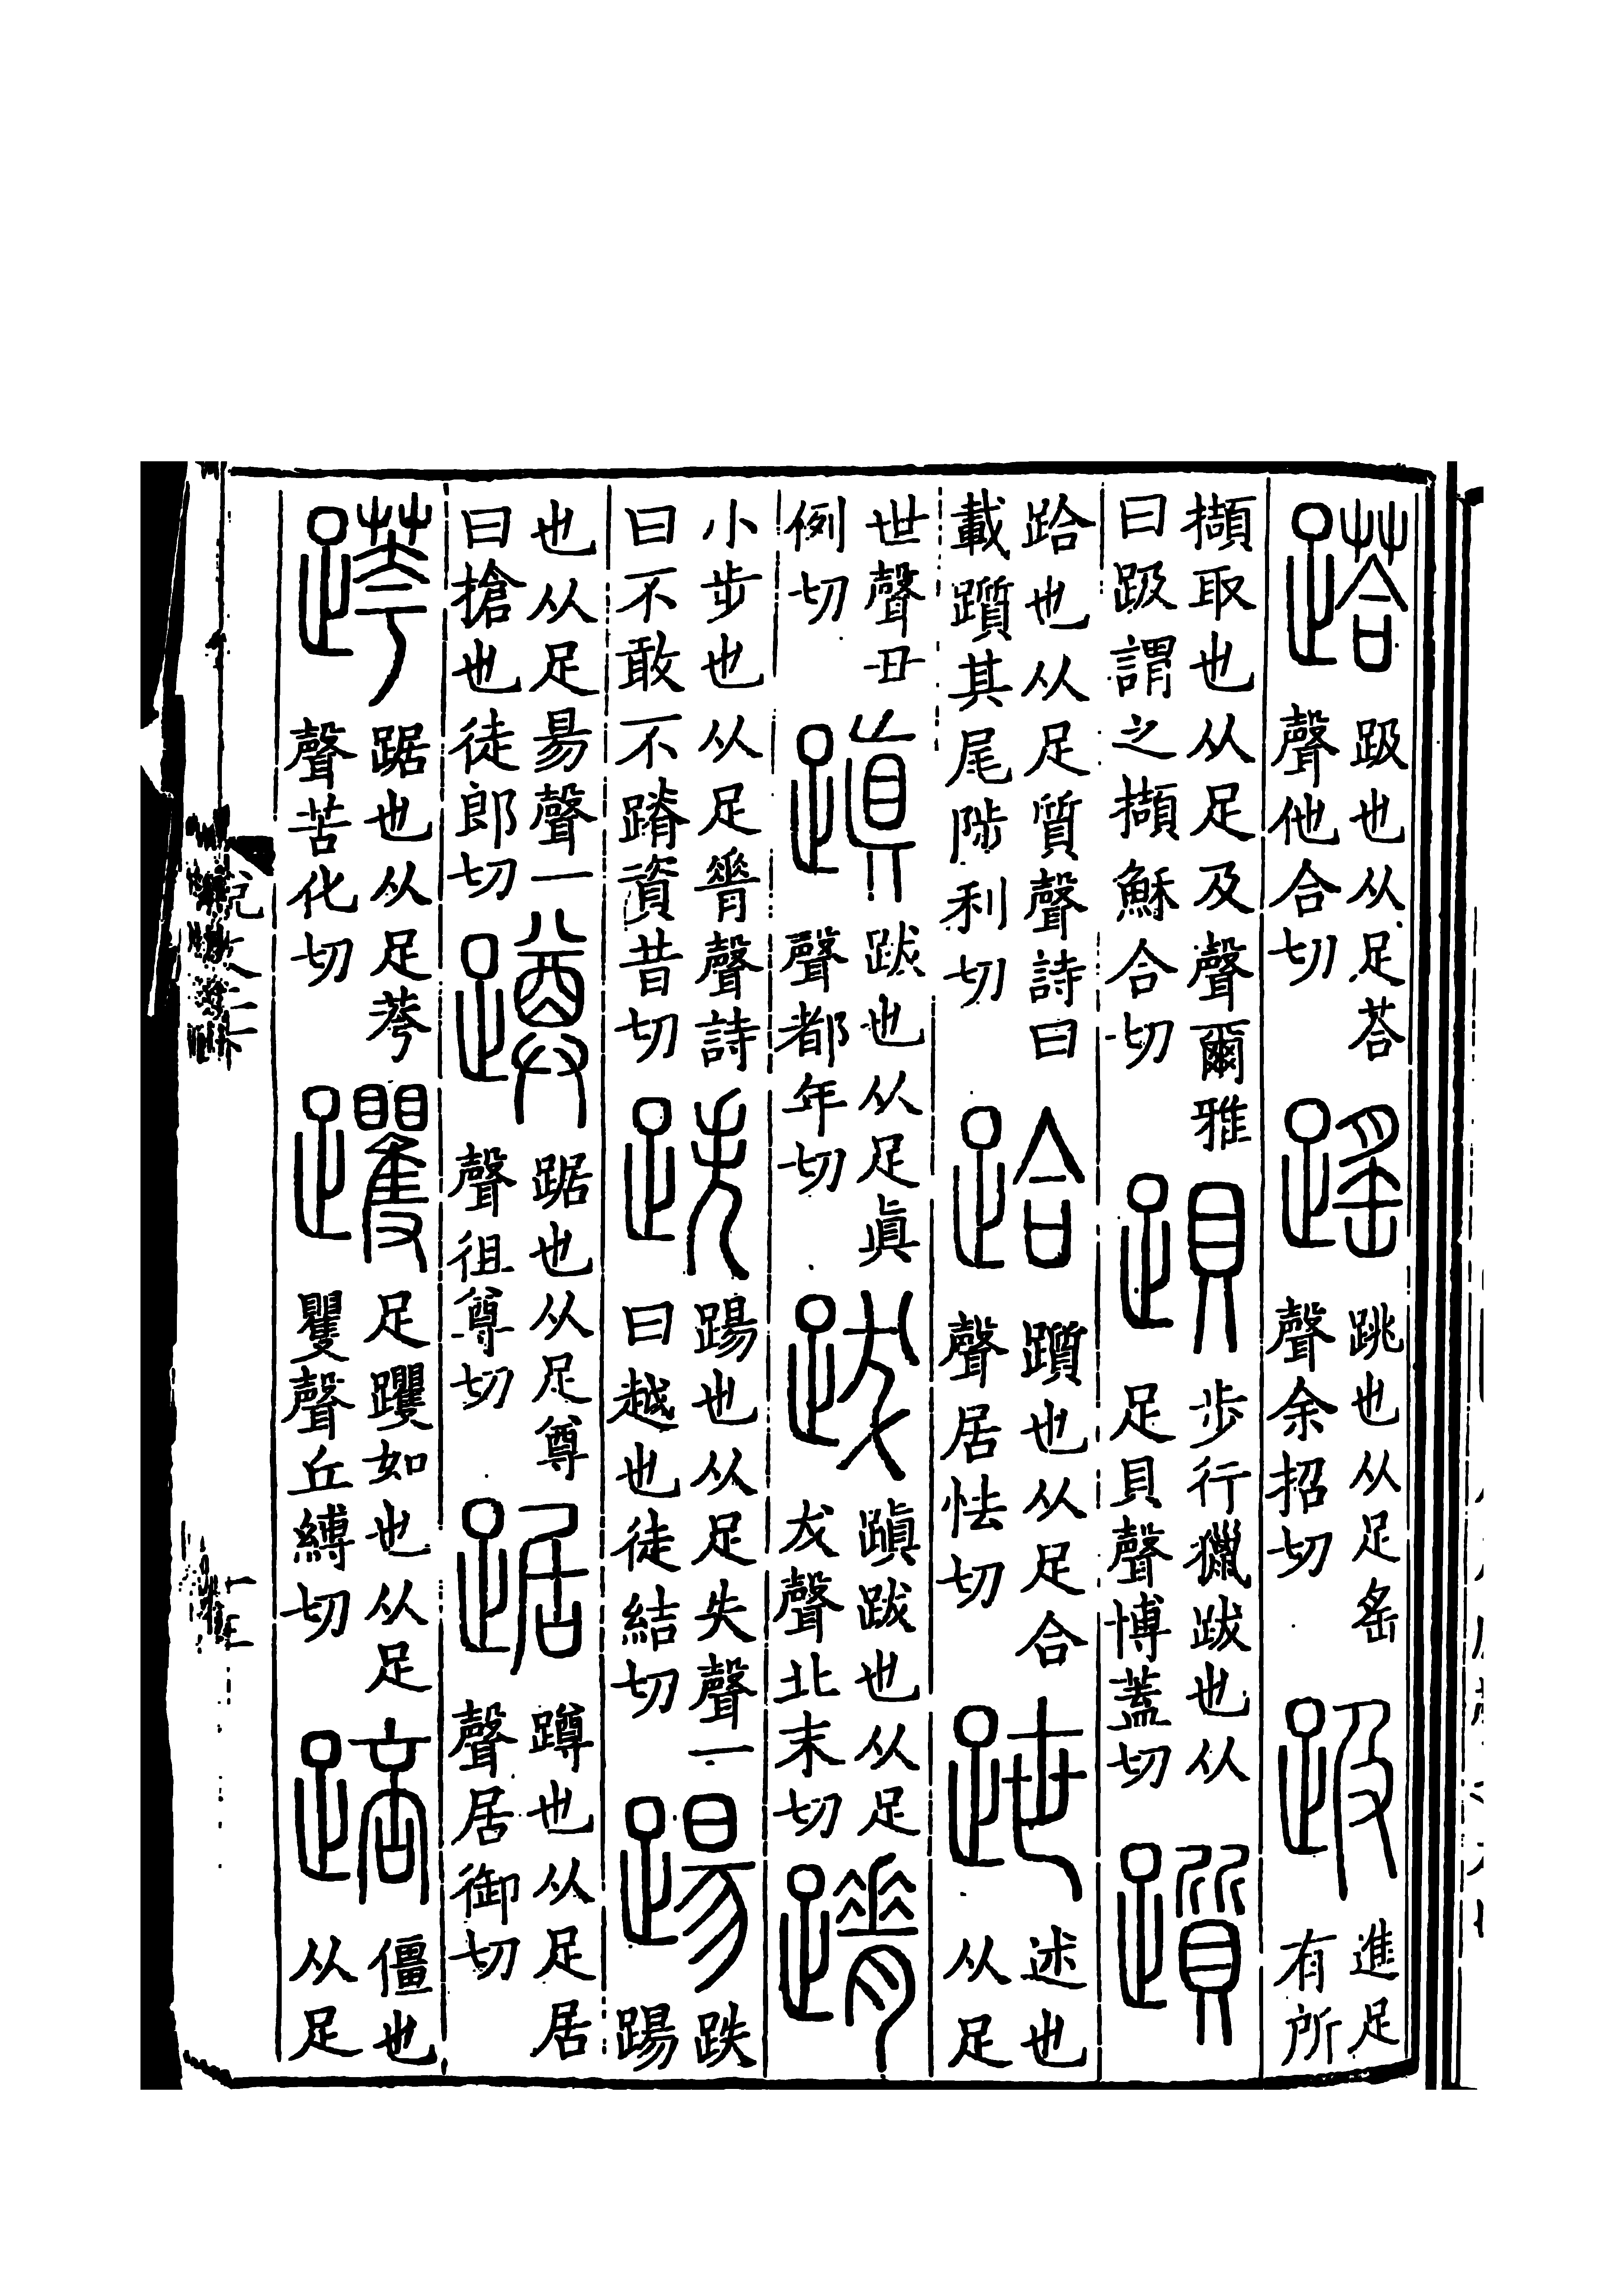 䠛 跋也从足荅聲他合切 䠛 跳也从足䍃聲余招切 趿 進足有所
擷取也从足及聲爾雅曰趿謂之擷穌合切 䟺 步行獵跋也从足貝聲博蓋切 躓
跲也从足質聲詩曰載躓其尾陟利切 跲 躓也从足合聲居怯切 跇 述也从足
世聲丑例切 蹎 跋也从足眞聲都年切 跋 蹎跋也从足犮聲北末切 蹐
小步也从足脊聲詩曰不敢不蹐資昔切 跌 踼也从足失聲一曰越也徒結切 踼 跌踼
也从足昜聲一曰搶也徒郎切 蹲 踞也从足尊聲徂尊切 踞 蹲也从足居聲居御切
跨 踞也从足荂聲苦化切 躩 足躩如也从足矍聲丘縛切 踣 僵也从足